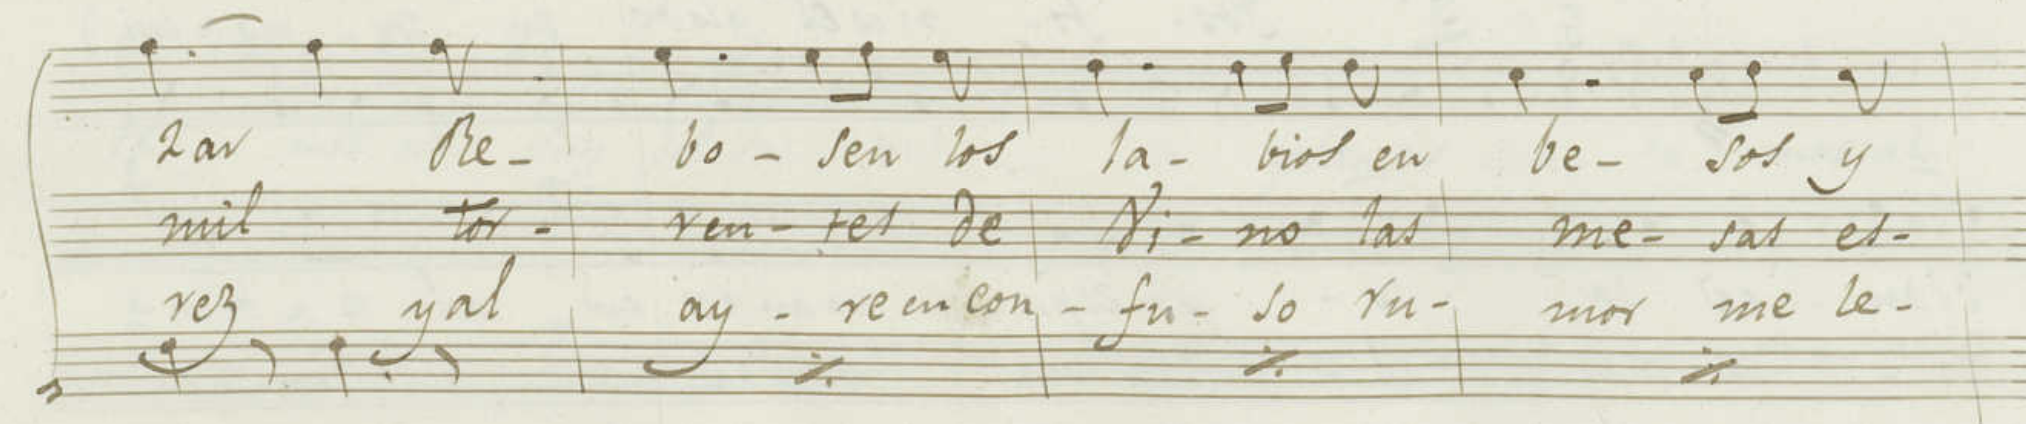 zar Re- bo - sen los la - bios en be - sos y
mil tor - ren - tes de Vi - no las me - sas es -
rez y al ay - re en con - fu - so ru - mor me le -